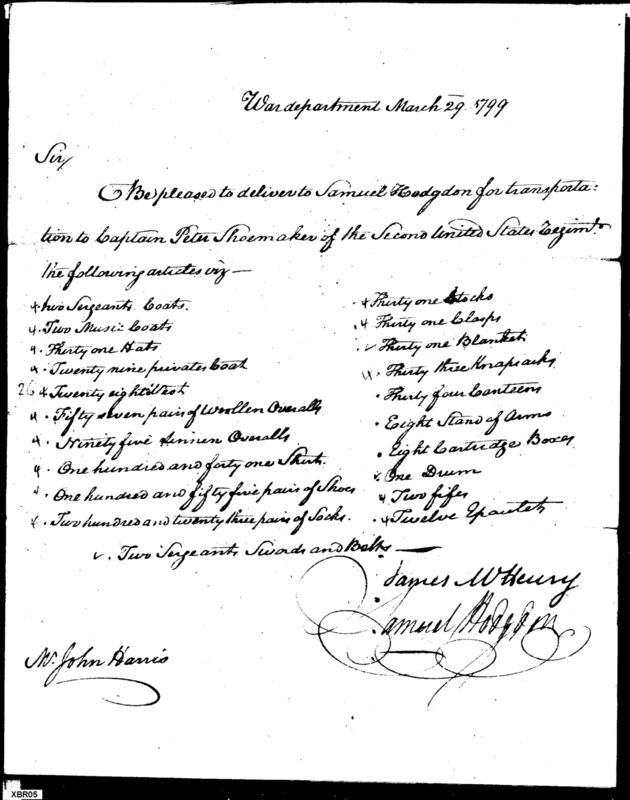 War department March 29. 1799
Sir/
Be pleased to deliver to Samuel Hodgdon for transporta=
tion to Captain Peter Shoemaker of the Second United States Regimt.
the following articles viz —
+ two Sergeants Coats.
4 · Two Music Coats
4 · Thirty one Hats
4 · Twenty nine privates Coat
26 4 Twenty eight Vest
4 · Fifty seven pairs of Woollen Overalls
4 · Ninety five Linnen Overalls
4 · One hundred and forty one Shirts.
4 · One hundred and fifty five pairs of Shoes
4 · Two hundred and twenty three pairs of Socks.
· + Thirty one Stocks
· 4 Thirty one Clasps
· ✓ Thirty one Blankets
4 · Thirty three Knapsacks
· Thirty four Canteens
· Eight Stand of Arms
· Eight Cartridge Boxes
✓ One Drum
4 Two fifes
· 4 Twelve Epaulets
✓ · Two Sergeants Swords and Belts —
James McHenry
Samuel Hodgdon
Mr. John Harris
XBR05